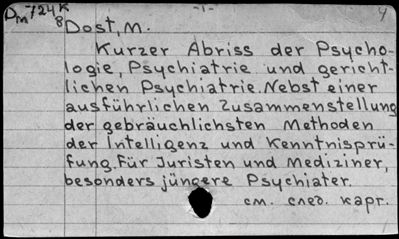 Dm-724K -1- 4
8 Dost, M.
Kurzer Abriss der Psycho-
logie, Psychiatrie und gericht-
lichen Psychiatrie. Nebst einer
ausführlichen Zusammenstellung
der gebräuchlichsten Methoden
der Intelligenz und Kenntnisprü-
fung. Für Juristen und Mediziner,
besonders jüngere Psychiater.
см. след. карт.